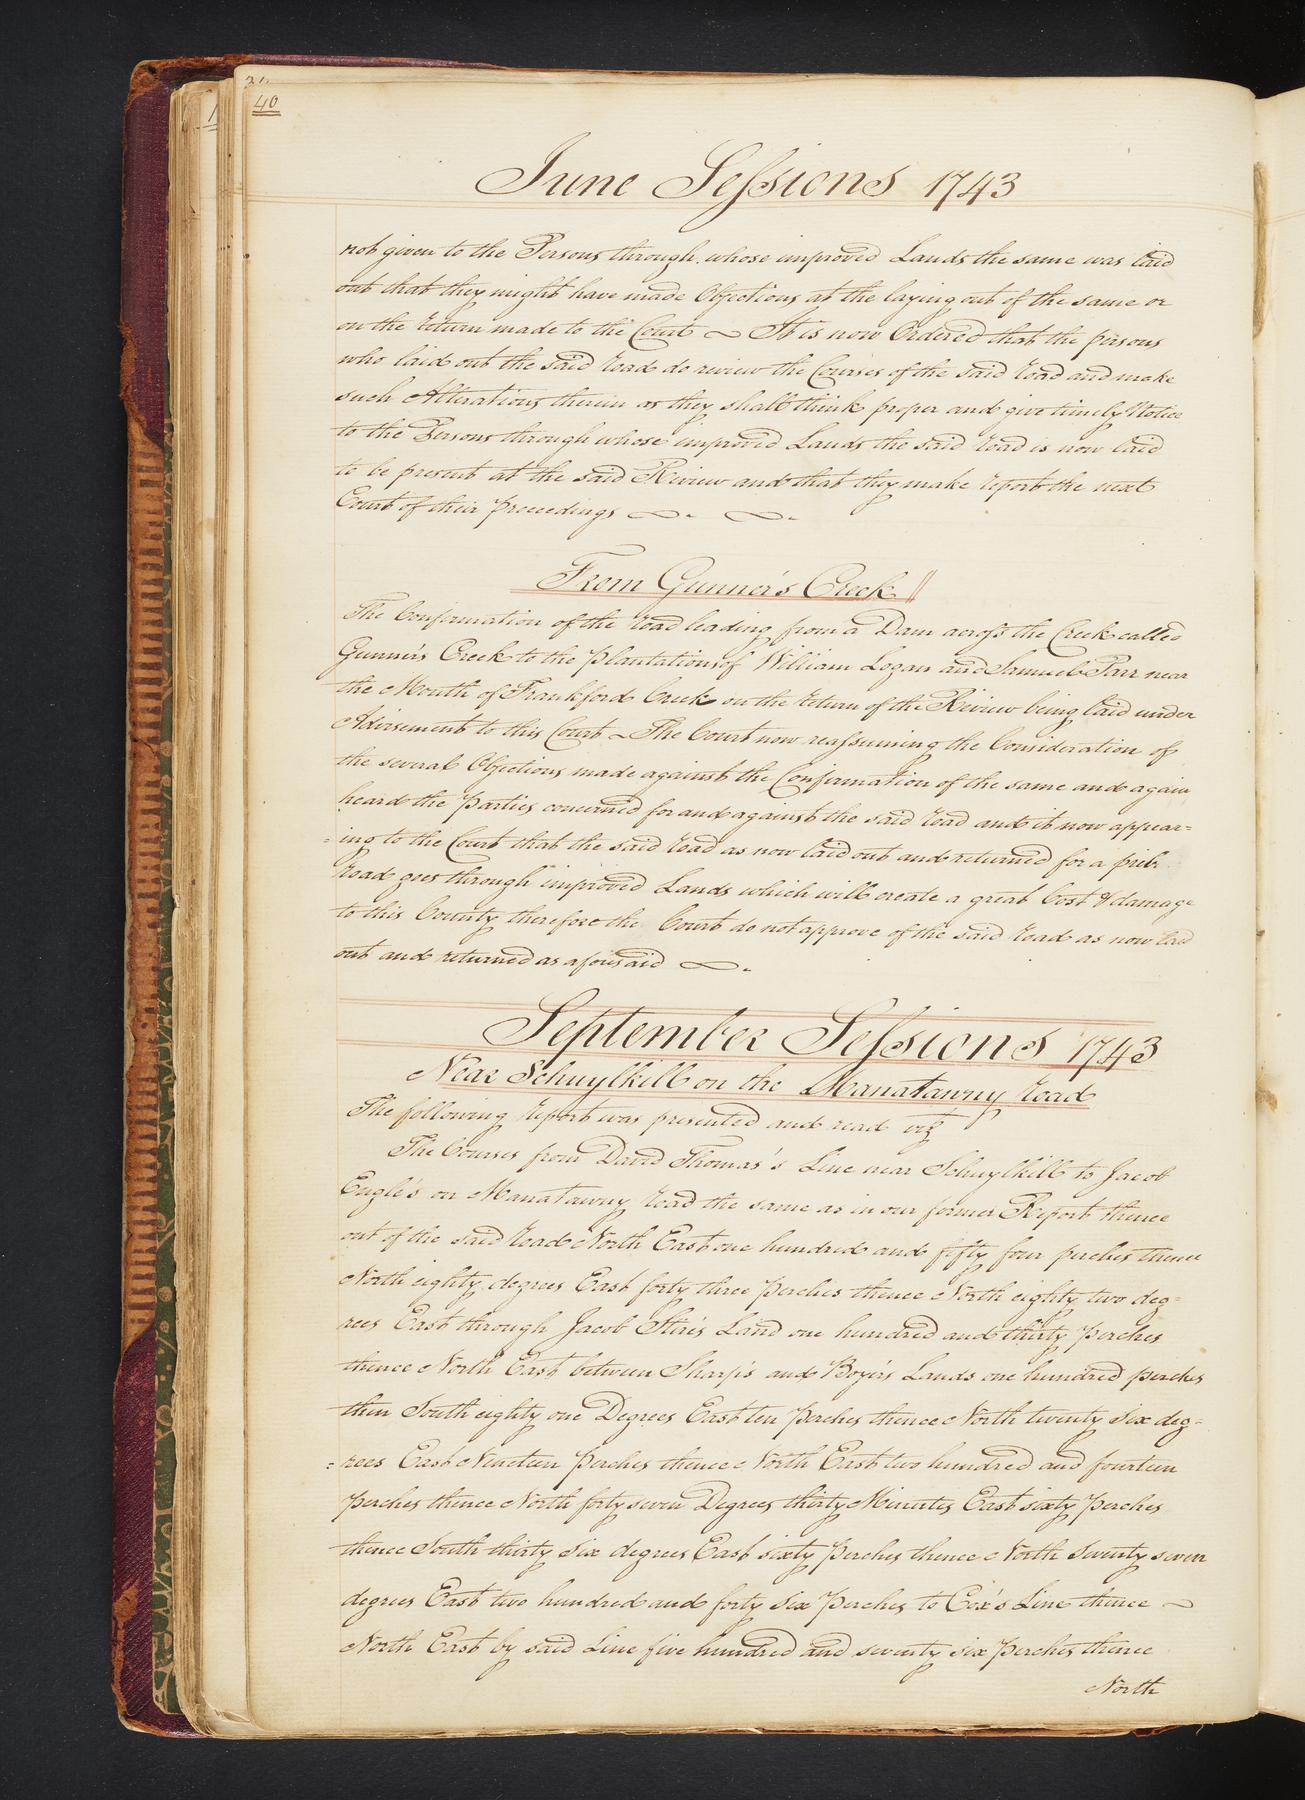 40
June Sessions 1743
not given to the Persons through whose improved Lands the same was laid
out that they might have made Objections at the laying out of the same or
on the return made to the Court ~ It is now Ordered that the persons
who laid out the said road do review the Courses of the said road and make
such Alterations therein as they shall think proper and give timely Notice
to the Persons through whose improved Lands the said road is now laid
to be present at the said Review and that they make report the next
Court of their proceedings
From Gunner's Creek
The Confirmation of the road leading from a Dam across the Creek called
Gunner's Creek to the plantations of William Logan and Samuel Parr near
the Mouth of Frankford Creek on the return of the Review being laid under
Advisement to this Court ~ The Court now reassuming the Consideration of
the several Objections made against the Confirmation of the same and again
heard the parties concerned for and against the said road and it now appear=
=ing to the Court that the said road as now laid out and returned for a
road goes through improved Lands which will create a great Cost & damage
to this County therefore the Court do not approve of the said road as now laid
out and returned as aforesaid
September Sessions 1743
Near Schuylkill on the Manatawny road
The following report was presented and read viz
The Courses from David Thomas's Line near Schuylkill to Jacob
Engle's on Manatawny road the same as in our former Report thence
out of the said road North East one hundred and fifty four perches thence
North eighty degrees East forty three perches thence North eighty two deg=
rees East through Jacob Land one hundred and thirty perches
thence North East between Sharp's and Boyer's Lands one hundred perches
then South eighty one Degrees East ten perches thence North twenty six deg=
=rees East Nineteen perches thence North East two hundred and fourteen
perches thence North forty seven Degrees thirty Minutes East sixty perches
thence South thirty six degrees East sixty perches thence North seventy seven
degrees East two hundred and forty six perches to Cox's Line thence ~
North East by said Line five hundred and seventy six perches thence
North